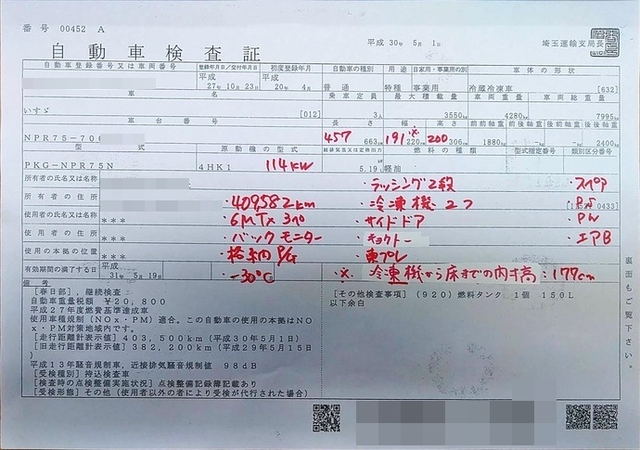 番号 00452 A
平成 30年 5月 1日
埼玉運輸支局長
自動車検査証
自動車登録番号又は車両番号 登録年月日/交付年月日 初度登録年月 自動車の種別 用途 自家用・事業用の別 車体の形状
平成 27年 10月 23日 平成 20年 4月 普通 特種 事業用 冷蔵冷凍車 [632]
車名 乗車定員 最大積載量 車両重量 車両総重量
いすゞ [012] 3人 3550kg 4280kg 7995kg
車台番号 長さ 幅 高さ 前前軸重 前後軸重 後前軸重 後後軸重
NPR75-700 457 663 191※ 220 200 306 1880 - - 2400
型式 原動機の型式 燃料の種類 型式指定番号 類別区分番号
PKG-NPR75N 4HK1 114kw 5.19 軽油
所有者の氏名又は名称 ・ラッシング2段 ・スペア
所有者の住所 ・409582km ・冷凍機 ・PS
使用者の氏名又は名称 *** ・6MTx3ペ ・サイドドア ・PW
使用者の住所 *** ・バックモニター ・キョクトー ・エアB
使用の本拠の位置 *** ・格納P/G ・東プレ
有効期間の満了する日 平成 31年 5月 19日 ・-30℃ ・※ 冷凍機から床までの内寸高:177cm
備考
[春日部],継続検査
自動車重量税額 ¥20,800
平成27年度燃費基準達成車
使用車種規制(NOx・PM)適合。この自動車の使用の本拠はNO
x・PM対策地域内です。
[走行距離計表示値] 403,500km(平成30年5月1日)
[旧走行距離計表示値] 382,200km(平成29年5月15日)
平成13年騒音規制車,近接排気騒音規制値 98dB
[受検種別] 持込検査車
[検査時の点検整備実施状況] 点検整備記録簿記載あり
[受検形態] その他(使用者以外の者により受検が代行された場合)
[その他検査事項] (920)燃料タンク 1個 150L
以下余白
裏面もご覧下さい。